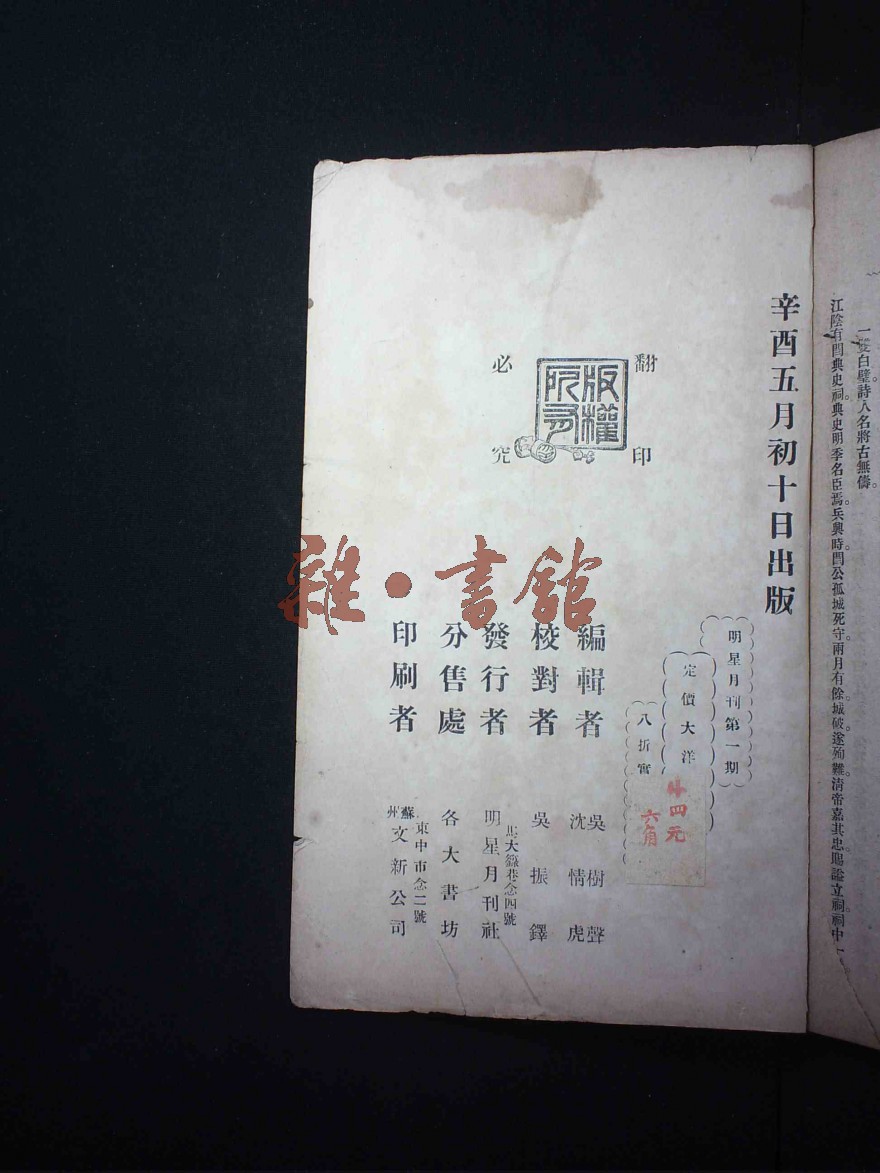 一雙白璧。詩人名將古無儔。
江陰有閻典史祠。典史明季名臣焉。兵興時。閻公孤城死守。兩月有餘。城破。遂殉難。清帝嘉其忠。賜謚立祠。祠中一
辛酉五月初十日出版
明星月刊第一期
定價大洋
四元
八折實
六角
翻印
必究
版權所有
編輯者 吳樹聲 沈情虎
校對者 吳振鐸
發行者 馬大籙巷念四號 明星月刊社
分售處 各大書坊
印刷者 蘇州 東中市念二號 文新公司
雜·書館